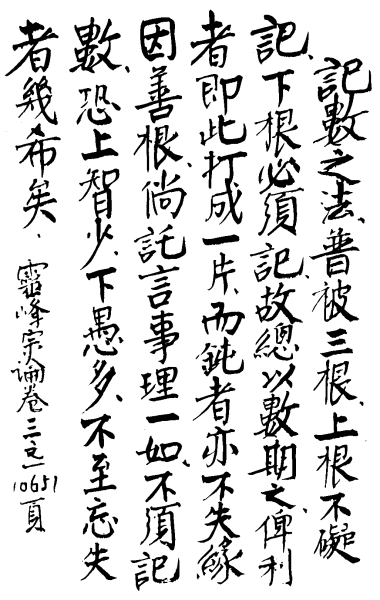 記數之法、普被三根、上根不礙
記、下根必須記、故總以數期之、俾利
者即此打成一片、而鈍者亦不失緣
因善根、倘託言事理一如、不須記
數、恐上智少、下愚多、不至忘失
者幾希矣．
靈峰宗論卷三之一
10651頁